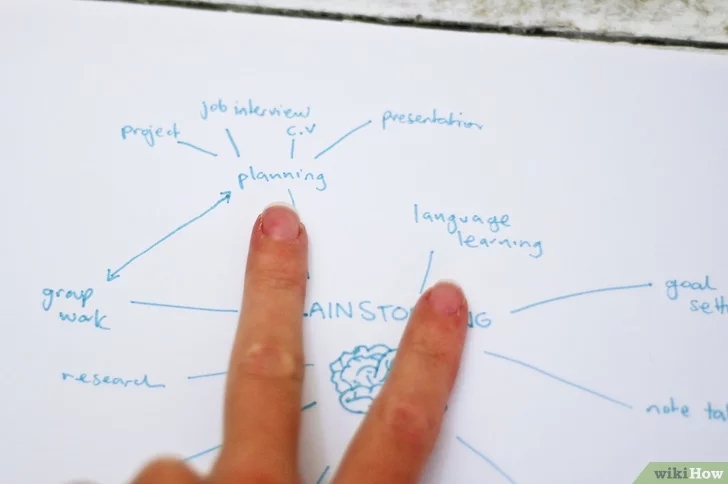 job interview
project
c.v
presentation
planning
language
learning
group
work
goal
research
note
wikiHow